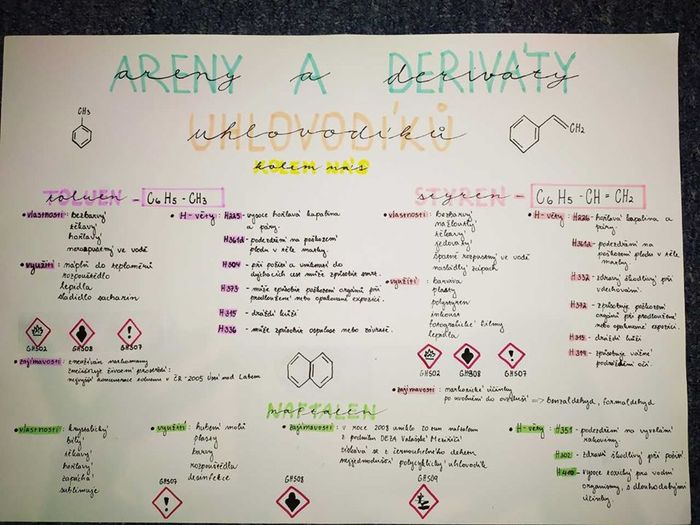 ARENY A DERIVÁTY
areny a deriváty
UHLOVODÍKŮ
uhlovodíků
KOLEM NÁS
kolem nás
CH3
CH2
TOLUEN
toluen - C6 H5 - CH3
• vlastnosti: bezbarvý
těkavý
hořlavý
nerozpustný ve vodě
• využití: náplň do teploměrů
rozpouštědlo
lepidla
sladidlo sacharin
• H - věty: H225 - vysoce hořlavá kapalina
a páry.
H361d - podezření na poškození
plodu v těle matky.
H304 - při požití a vniknutí do
dýchacích cest může způsobit smrt.
H373 - může způsobit poškození orgánů při
prodloužené nebo opakované expozici.
H315 - dráždí kůži
H336 - může způsobit ospalost nebo závratě.
GHS02 GHS08 GHS07
• zajímavosti: zneužíván narkomany
znečišťuje životní prostředí:
nejvyšší koncentrace toluenu v ČR - 2005 Ústí nad Labem
STYREN
styren - C6 H5 - CH = CH2
• vlastnosti: bezbarvý
nažloutlý
těkavý
jedovatý
špatně rozpustný ve vodě
nasládlý zápach
• využití: barviva
plasty
polystyren
inkoust
fotografické filmy
lepidla
• H - věty: H226 - hořlavá kapalina a
páry.
H361d - podezření na
poškození plodu v těle
matky.
H332 - zdraví škodlivý při
vdechování.
H372 - způsobuje poškození
orgánů při prodloužené
nebo opakované expozici.
H315 - dráždí kůži.
H319 - způsobuje vážné
podráždění očí.
GHS02 GHS08 GHS07
• zajímavosti: narkotické účinky
po uvolnění do ovzduší => benzaldehyd, formaldehyd
NAFTALEN
naftalen
• vlastnosti: krystalický
bílý
těkavý
hořlavý
zapáchá
sublimuje
• využití: hubení molů
plasty
barviv
rozpouštědla
desinfekce
GHS07
• zajímavosti: v roce 2008 uniklo 20 tun naftalenu
z podniku DEZA Valašské Meziříčí
získává se z černouhelného dehtu
nejjednodušší polycyklický uhlovodík
GHS08
GHS09
• H - věty: H351 - podezření na vyvolání
rakoviny.
H302 - zdraví škodlivý při požití
H410 - vysoce toxický pro vodní
organismy, s dlouhodobými
účinky.